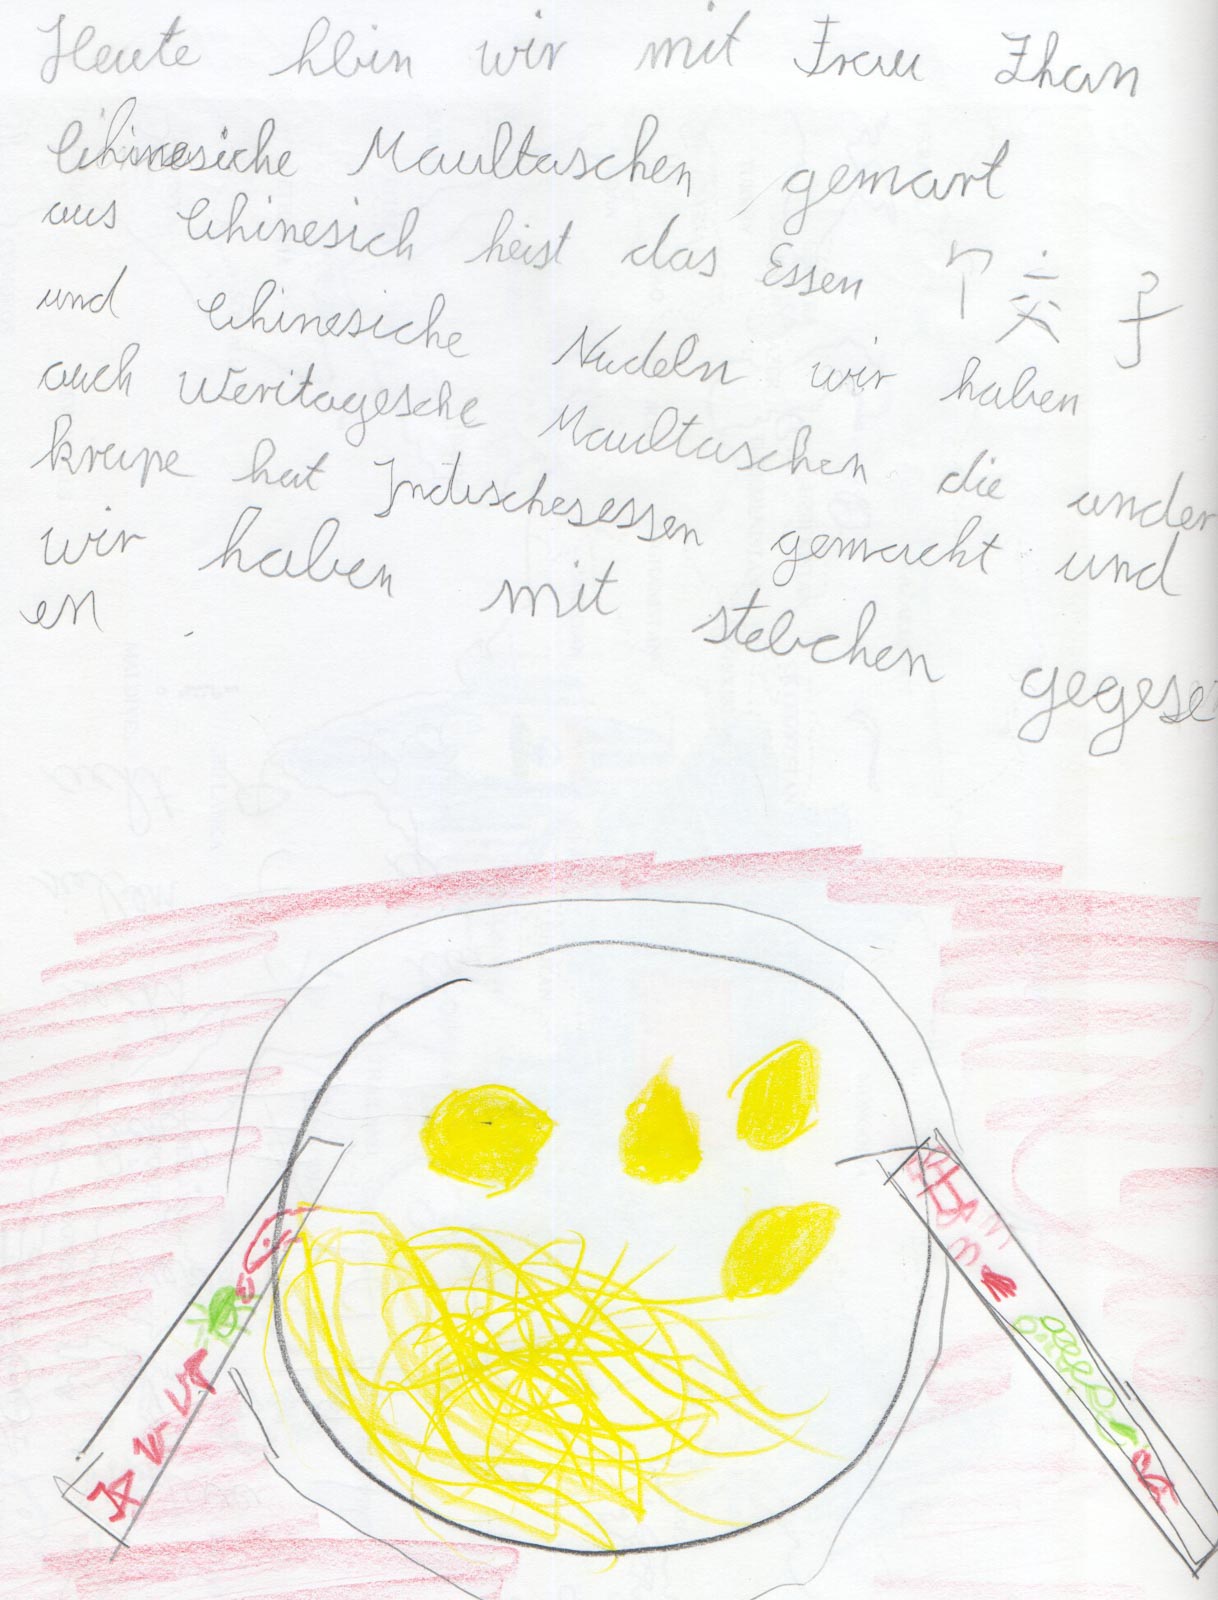 Heute hbin wir mit Frau Zhan
Chinesiche Maultaschen gemart
aus Chinesich heist das Essen 饺子
und Chinesiche Nudeln wir haben
auch Weritagesche Maultaschen die ander
krupe hat Indischesessen gemacht und
wir haben mit stebchen gegesen
en.